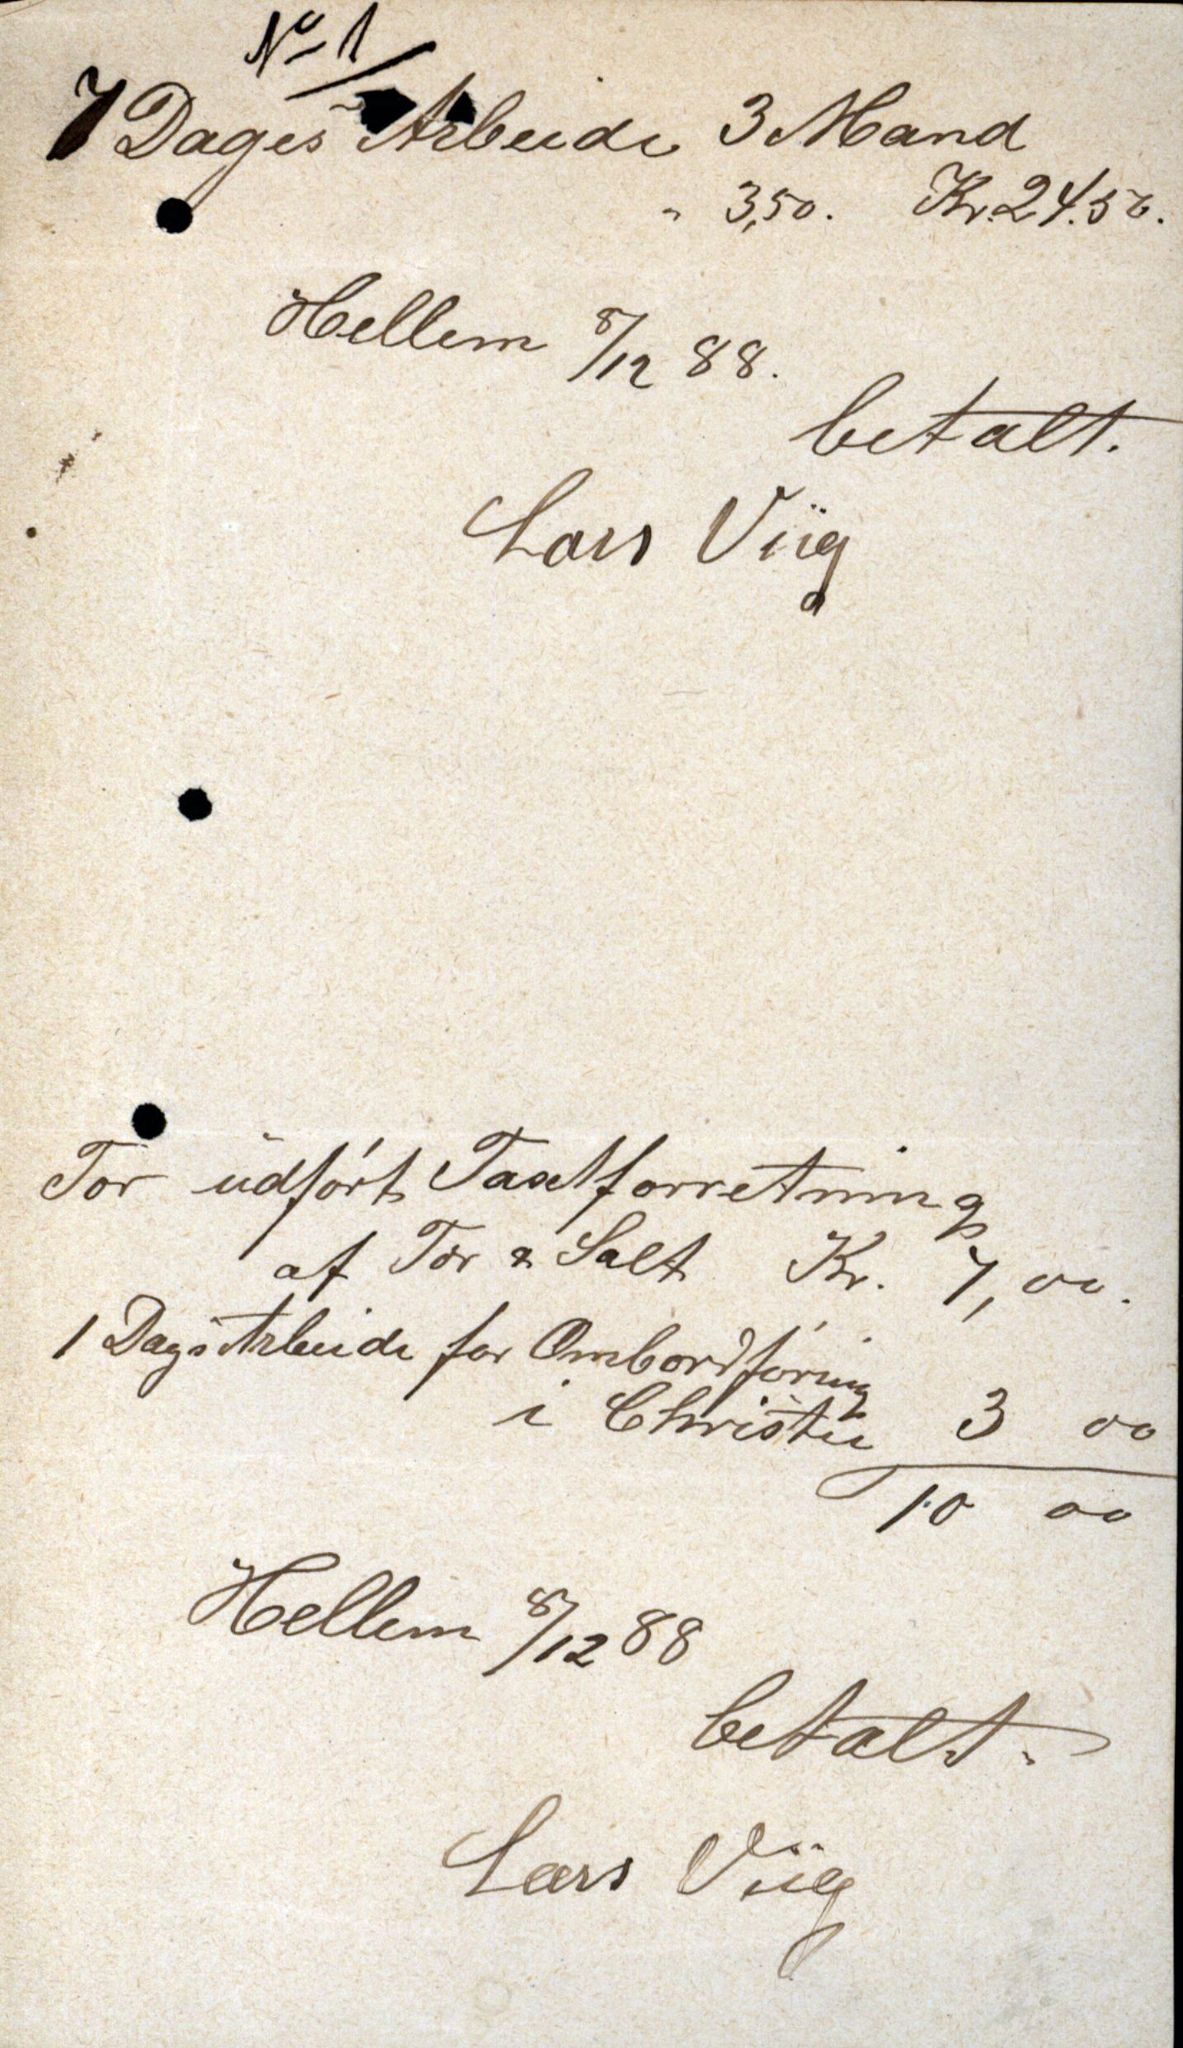 No 1
7 Dages Arbeide 3 Mand
" 3,50. Kr. 24.50.
Hellem 8/12 88.
betalt.
Lars Viig
For udfört Taxtforretning
af Tør & Salt Kr. 7,00.
1 Dags Arbeide for Ombordföring
i Christie 3 00
10 00
Hellem 8/12 88
betalt.
Lars Viig